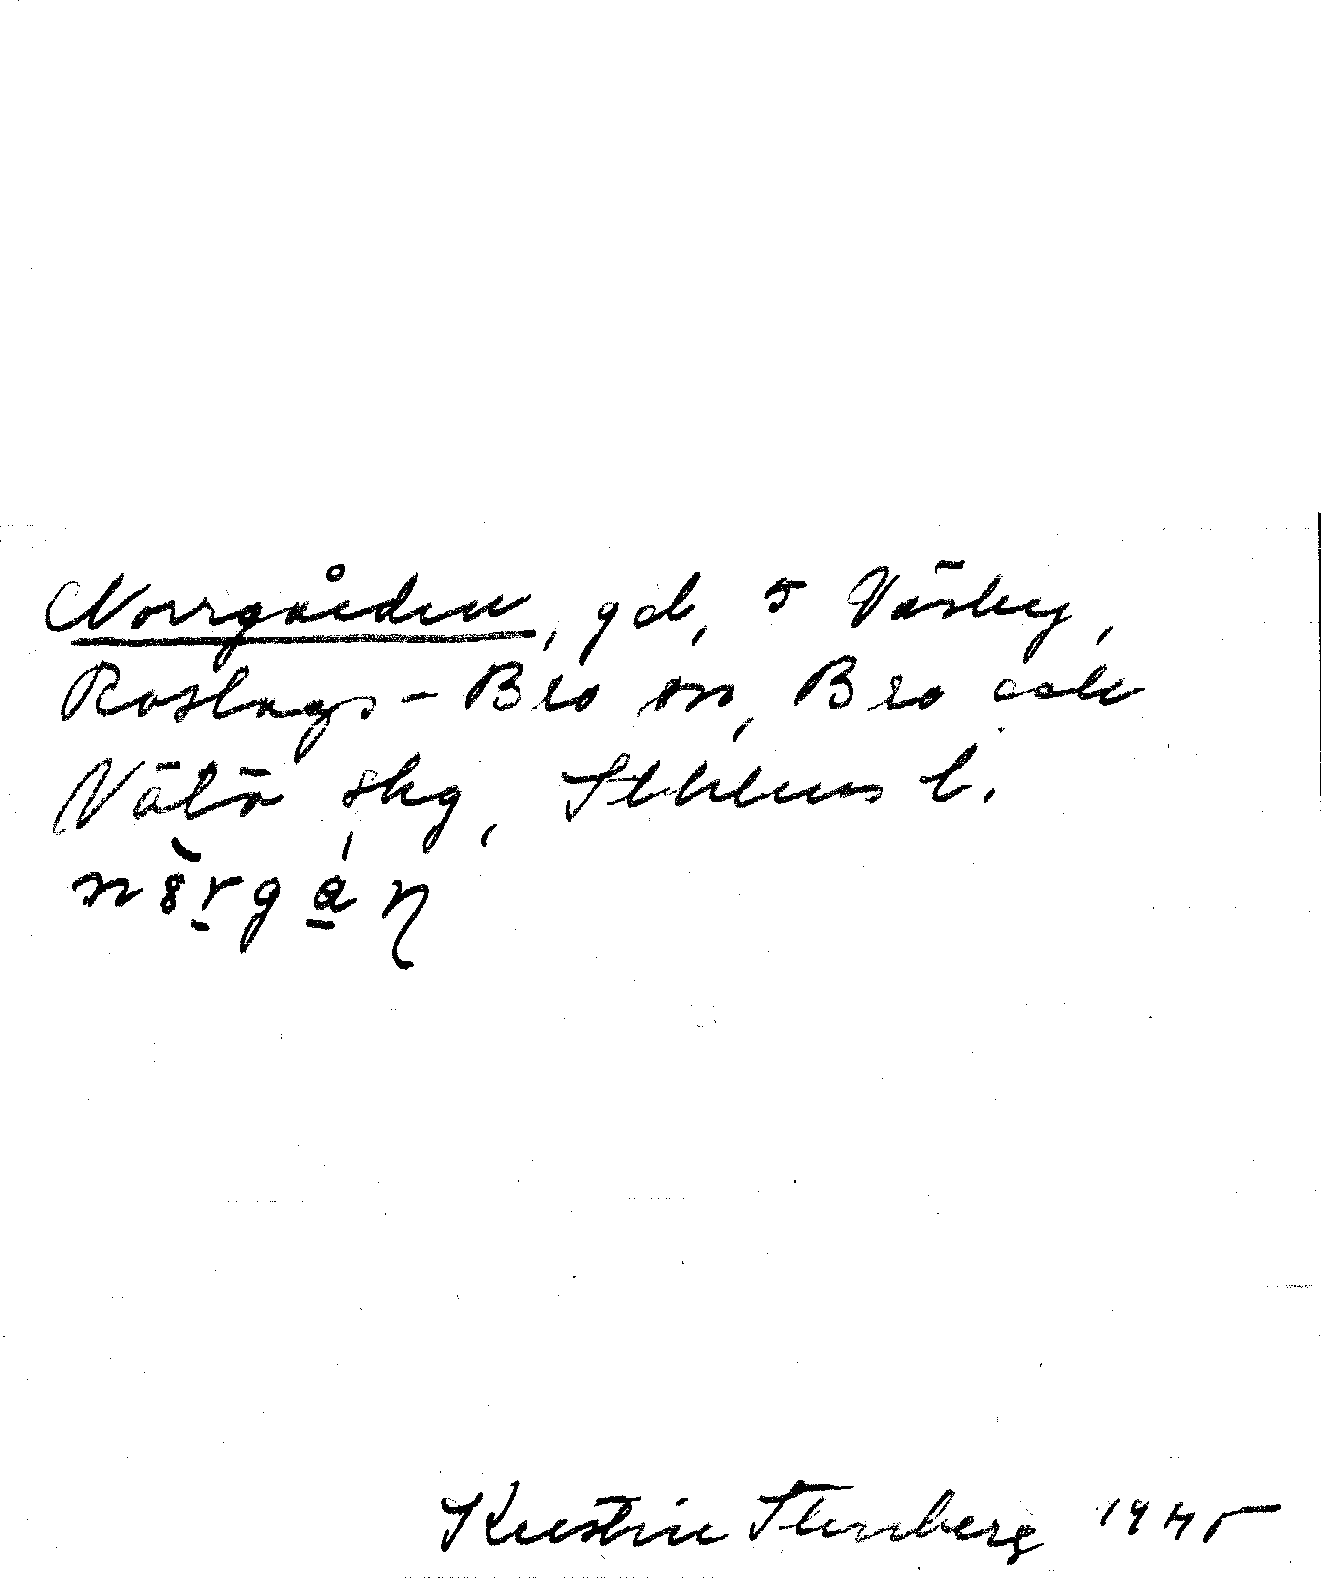 Norrgården, gd, i Väsby,
Roslags-Bro sn, Bro och
Vätö skg, Sthlms l.
Kerstin Stenberg 1945